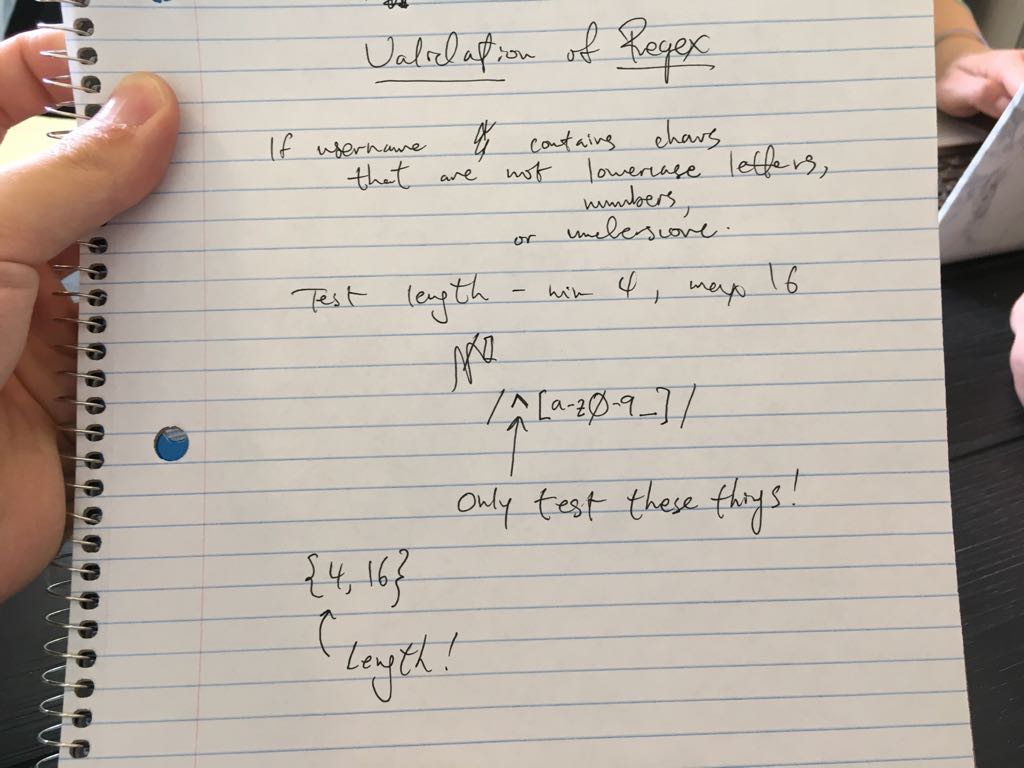 Validation of Regex
If username contains chars
that are not lowercase letters,
numbers,
or underscore.
Test length - min 4, max 16
/^[a-z0-9_]/
Only test these things!
{4, 16}
Length!